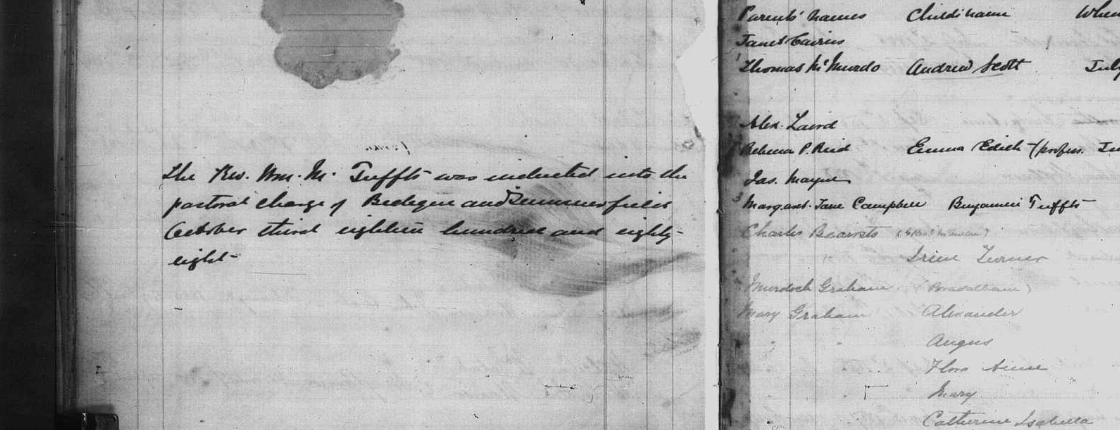 The Rev. Wm. M. Tuffts was inducted into the
pastoral charge of Bedeque and Summerfield
October third eighteen hundred and eighty-
eight
Parents' names Child's name When
Janet Cairns
Thomas McMurdo Andrew Scott July
Alex. Laird
Rebecca P. Reid Emma Edith (profess.
Jas. Mayne
Margaret Jane Campbell Benjamin Tuffts
Charles
Irene Turner
Murdoch Graham
Mary Graham Alexander
Angus
Flora Annie
Mary
Catherine Isabella